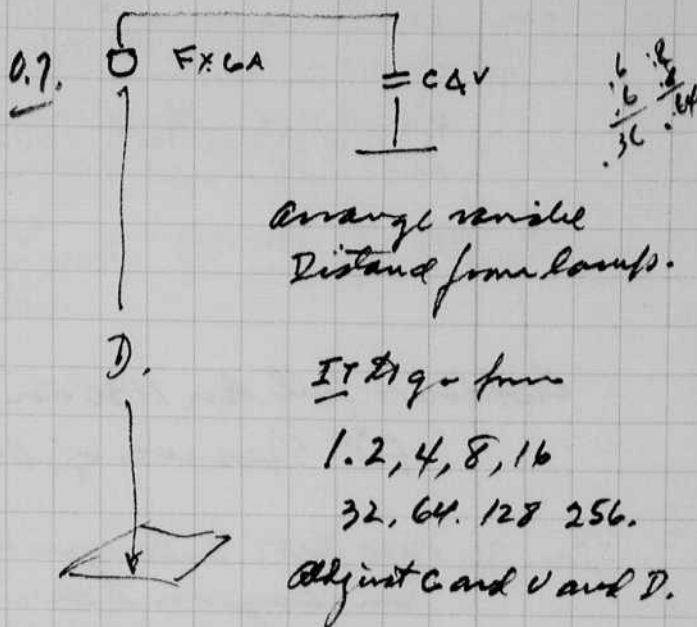 0.7. FX6A
C & V
.6
.6
.36
.8
.8
.64
Arrange variable
Distance from lamp.
D.
IT to go from
1. 2, 4, 8, 16
32, 64. 128 256.
Adjust C and V and D.